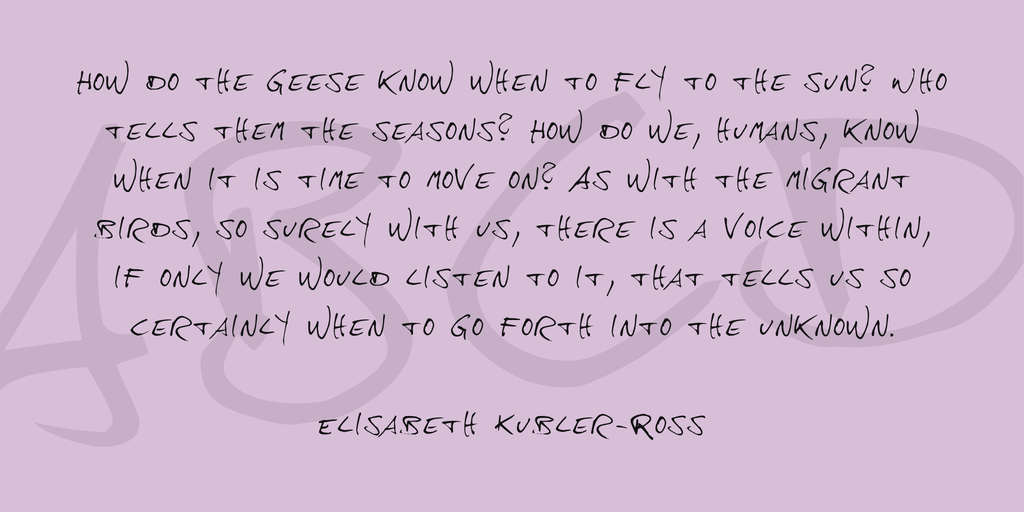 HOW DO THE GEESE KNOW WHEN TO FLY TO THE SUN? WHO
TELLS THEM THE SEASONS? HOW DO WE, HUMANS, KNOW
WHEN IT IS TIME TO MOVE ON? AS WITH THE MIGRANT
BIRDS, SO SURELY WITH US, THERE IS A VOICE WITHIN,
IF ONLY WE WOULD LISTEN TO IT, THAT TELLS US SO
CERTAINLY WHEN TO GO FORTH INTO THE UNKNOWN.
ELISABETH KUBLER-ROSS
ABCD